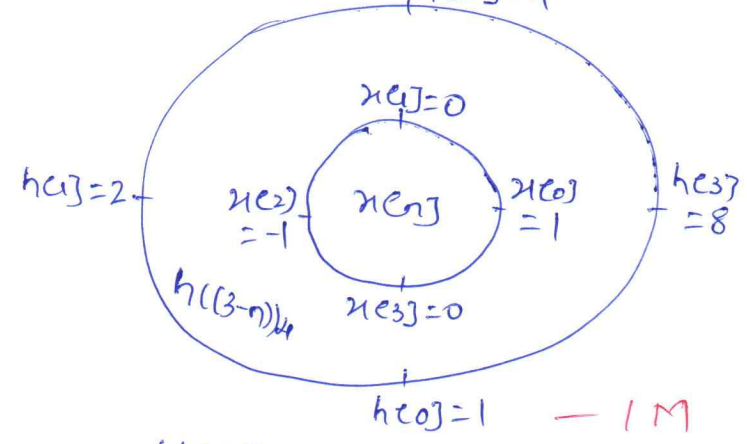 x[1]=0
h[1]=2
x[2]
=-1
x[n]
x[0]
=1
h[3]
=8
h((3-n))4
x[3]=0
h[0]=1
— 1M